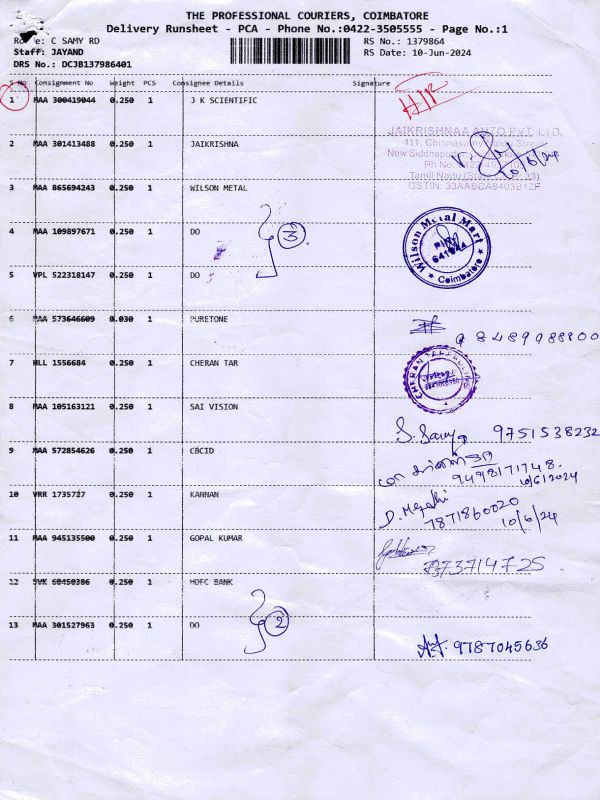 THE PROFESSIONAL COURIERS, COIMBATORE
Delivery Runsheet - PCA - Phone No.:0422-3505555 - Page No.:1
C SAMY RD RS No.: 1379864
Staff: JAYAND RS Date: 10-Jun-2024
DRS No.: DCJB137986401
S No Consignment No Weight PCS Consignee Details Signature
1 MAA 300419044 0.250 1 J K SCIENTIFIC
JAIKRISHNAA AUTO PVT. LTD.
2 MAA 301413488 0.250 1 JAIKRISHNA
111, Chinnasamy Street
New Siddhapudur
Ph No
Tamil Nadu
GSTIN: 33AABCA8403B1ZF
10/6/24
3 MAA 865694243 0.250 1 WILSON METAL
4 MAA 109897671 0.250 1 DO 3
Wilson Metal Mart
Coimbatore
5 VPL 522318147 0.250 1 DO
6 MAA 573646609 0.030 1 PURETONE
98489088800
7 HLL 1556684 0.250 1 CHERAN TAR
CHERAN
8 MAA 105163121 0.250 1 SAI VISION
9751538232
9 MAA 572854626 0.250 1 CBCID
9498171748.
10/6/2024
10 VRR 1735727 0.250 1 KANNAN
7871860020
10/6/24
11 MAA 945135500 0.250 1 GOPAL KUMAR
7373714725
12 SVK 60450386 0.250 1 HDFC BANK
13 MAA 301527963 0.250 1 DO 2
9787045636